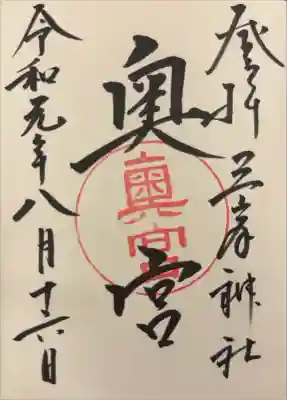 登拝三峯神社
奥宮
奧宮
令和元年八月十六日